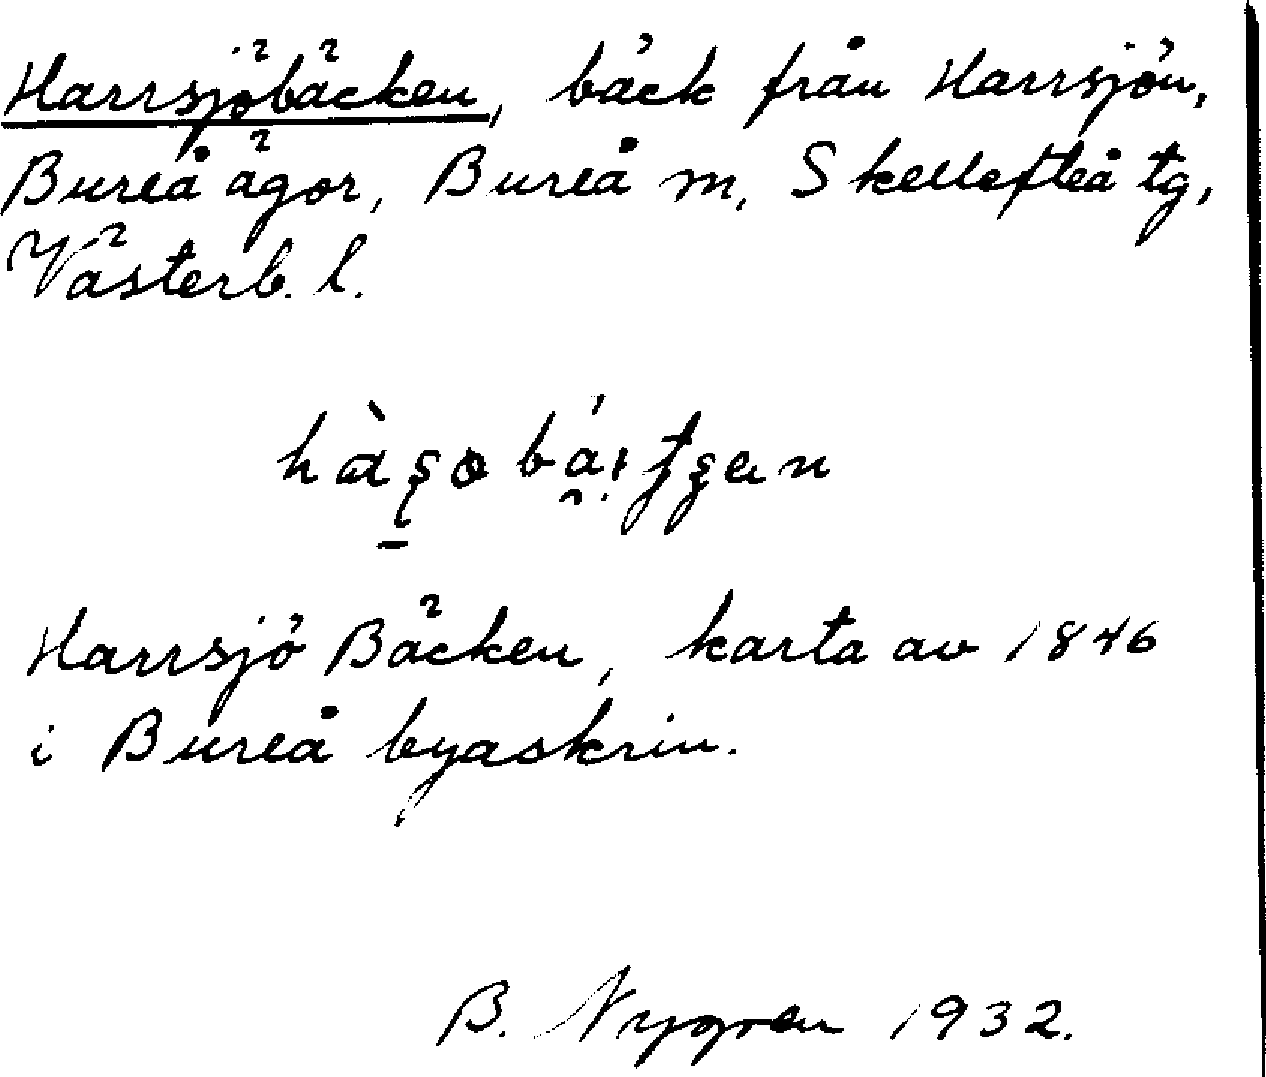 Harrsjöbäcken, bäck från Harrsjön,
Bureå ägor, Bureå m, Skellefteå tg,
Västerb. l.
Harrsjö Bäcken, karta av 1846
i Bureå byaskrin.
B. Nygren 1932.